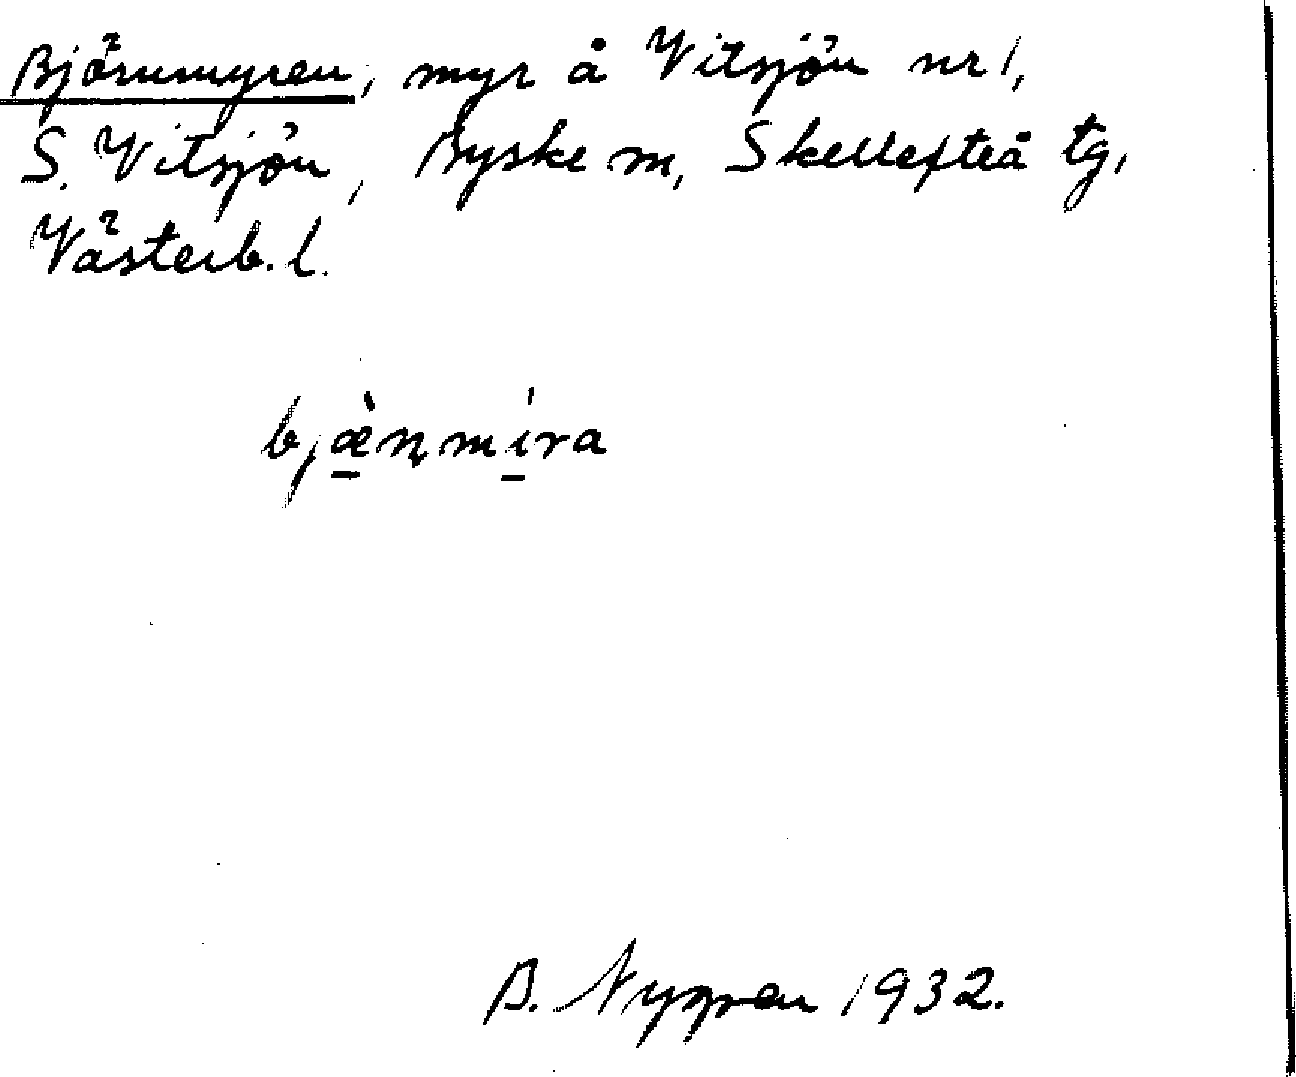 Björnmyren, myr å Vitsjön nr 1,
S. Vitsjön, Byske sn, Skellefteå tg,
Västerb. l.
bjæ̠̀ɳmi̠̍ra
B. Nygren 1932.